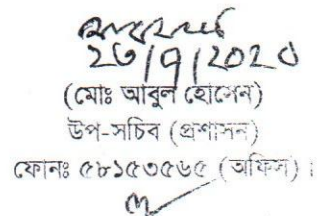 ২৩/৭/২০২০
(মোঃ আবুল হোসেন)
উপ-সচিব (প্রশাসন)
ফোনঃ ৫৮১৫৩৫৬৫ (অফিস)।